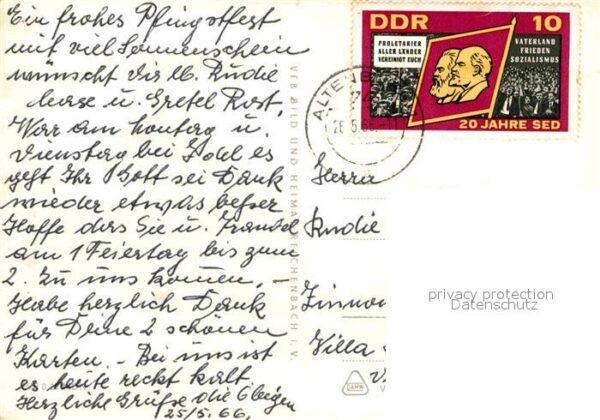 Ein frohes Pfingstfest
mit viel Sonnenschein
wünscht dir lb. Rudie
u. Gretel Rost,
War am Montag u.
Dienstag bei es
geht Ihr Gott sei Dank
wieder etwas besser
Hoffe das Sie u.
am 1 Feiertag bis zum
2. zu uns kommen. –
Habe herzlich Dank
für Deine 2 schönen
Karten. – Bei uns ist
es heute recht kalt.
Herzliche Grüße die Obigen
25/5. 66.
VEB BILD UND HEIMAT REICHENBACH I. V.
DDR 10
PROLETARIER
ALLER LÄNDER
VEREINIGT EUCH
VATERLAND
FRIEDEN
SOZIALISMUS
20 JAHRE SED
ALTENB
Herrn
Rudie
Zinnow
Villa
privacy protection
Datenschutz